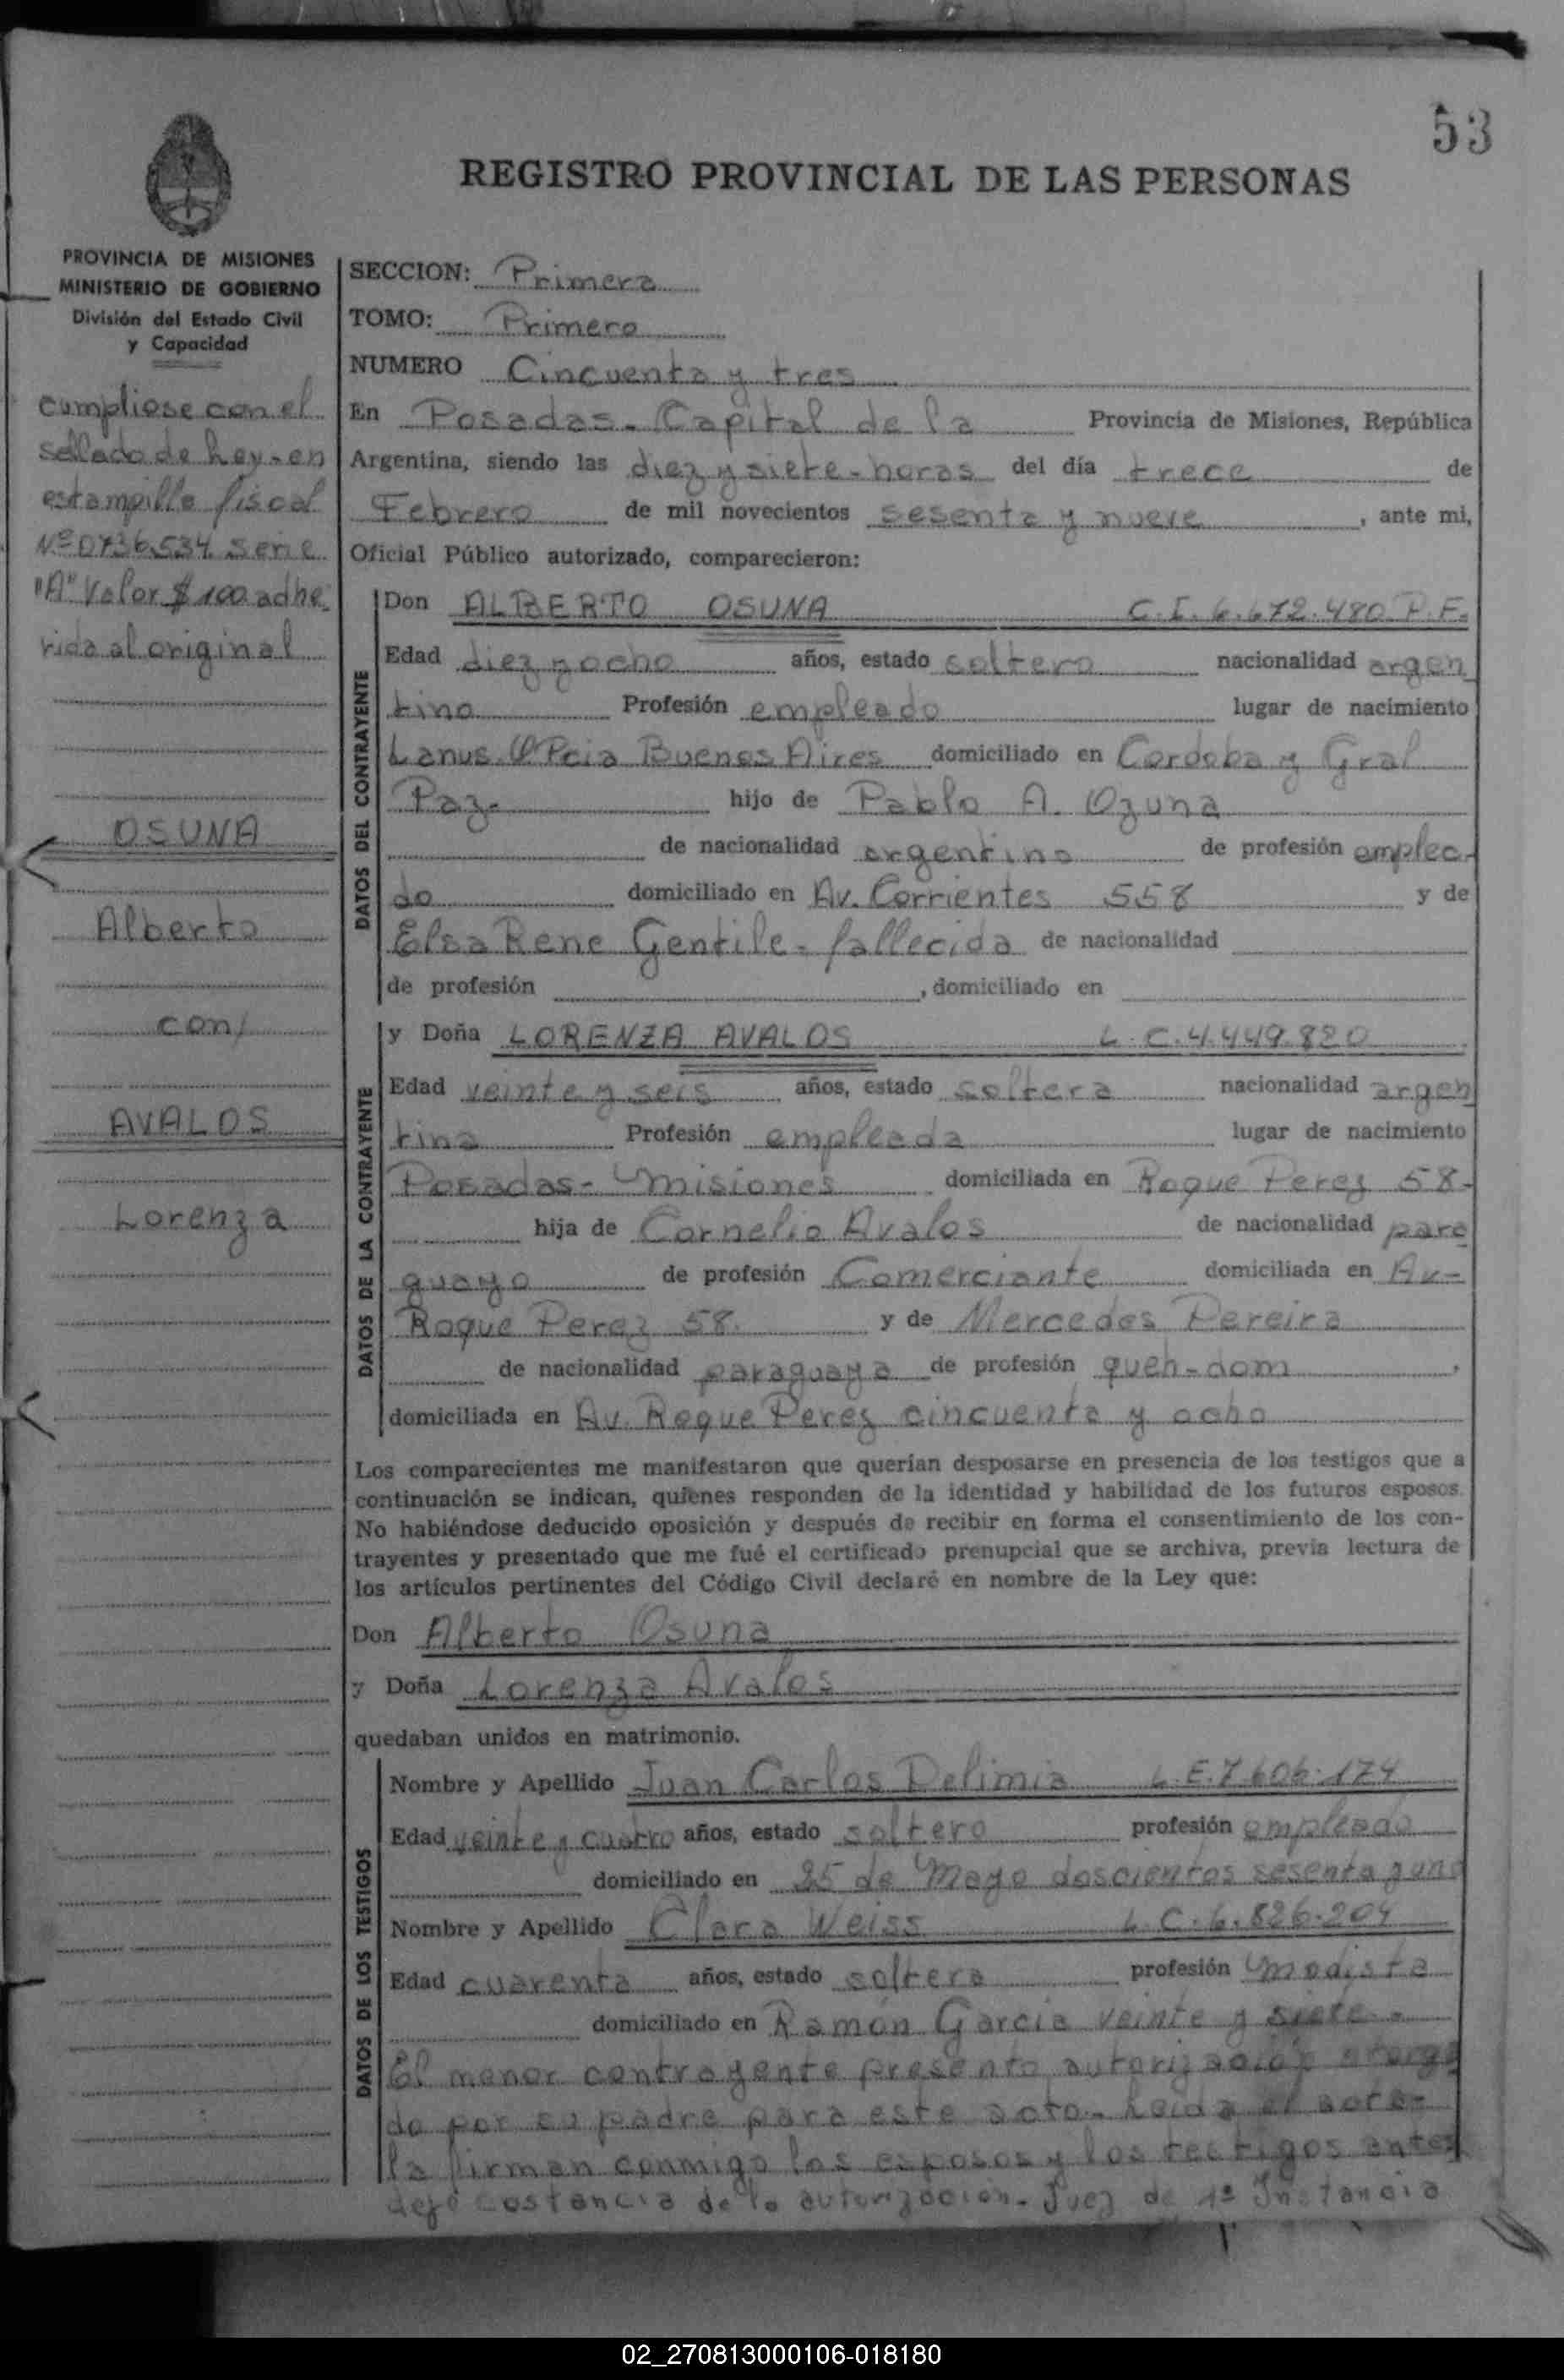 53
REGISTRO PROVINCIAL DE LAS PERSONAS
PROVINCIA DE MISIONES
MINISTERIO DE GOBIERNO
División del Estado Civil
y Capacidad
cumpliose con el
sellado de hoy - en
estampilla fiscal
Nº 0736534 serie
"A" Valor $ 100 adhe
rida al original
OSUNA
Alberto
con/
AVALOS
Lorenza
SECCION: Primera
TOMO: Primero
NUMERO Cincuenta y tres
En Posadas - Capital de la Provincia de Misiones, República
Argentina, siendo las diez y siete - horas del día trece de
Febrero de mil novecientos sesenta y nueve, ante mi,
Oficial Público autorizado, comparecieron:
DATOS DEL CONTRAYENTE
Don ALBERTO OSUNA C.I. 6.672.480 P.F.
Edad diez y ocho años, estado soltero nacionalidad argen
tino Profesión empleado lugar de nacimiento
Lanus Pcia Buenos Aires domiciliado en Cordoba y Gral
Paz- hijo de Pablo A. Ozuna
de nacionalidad argentino de profesión emplea-
do domiciliado en Av. Corrientes 558 y de
Elsa Rene Gentile - fallecida de nacionalidad
de profesión , domiciliado en
DATOS DE LA CONTRAYENTE
y Doña LORENZA AVALOS L.C. 4.449.820
Edad veinte y seis años, estado soltera nacionalidad argen
tina Profesión empleada lugar de nacimiento
Posadas - Misiones domiciliada en Roque Perez 58-
hija de Cornelio Avalos de nacionalidad para
guayo de profesión Comerciante domiciliada en Av-
Roque Perez 58. y de Mercedes Pereira
de nacionalidad paraguaya de profesión queh-dom ,
domiciliada en Av. Roque Perez cincuenta y ocho
Los comparecientes me manifestaron que querían desposarse en presencia de los testigos que a
continuación se indican, quienes responden de la identidad y habilidad de los futuros esposos.
No habiéndose deducido oposición y después de recibir en forma el consentimiento de los con-
trayentes y presentado que me fué el certificado prenupcial que se archiva, previa lectura de
los artículos pertinentes del Código Civil declaré en nombre de la Ley que:
Don Alberto Osuna
y Doña Lorenza Avalos
quedaban unidos en matrimonio.
DATOS DE LOS TESTIGOS
Nombre y Apellido Juan Carlos Delimia L.E. 7.606.174
Edad veinte y cuatro años, estado soltero profesión empleado
domiciliado en 25 de Mayo doscientos sesenta y uno
Nombre y Apellido Clara Weiss L.C. 6.826.204
Edad cuarenta años, estado soltera profesión Modista
domiciliado en Ramón Garcia veinte y siete -
El menor contrayente presento autorización otorga
do por su padre para este acto - Leida el acta -
la firman conmigo los esposos y los testigos antes
dejo costancia de la autorizacion - Juez de 1ª Instancia
02_270813000106-018180